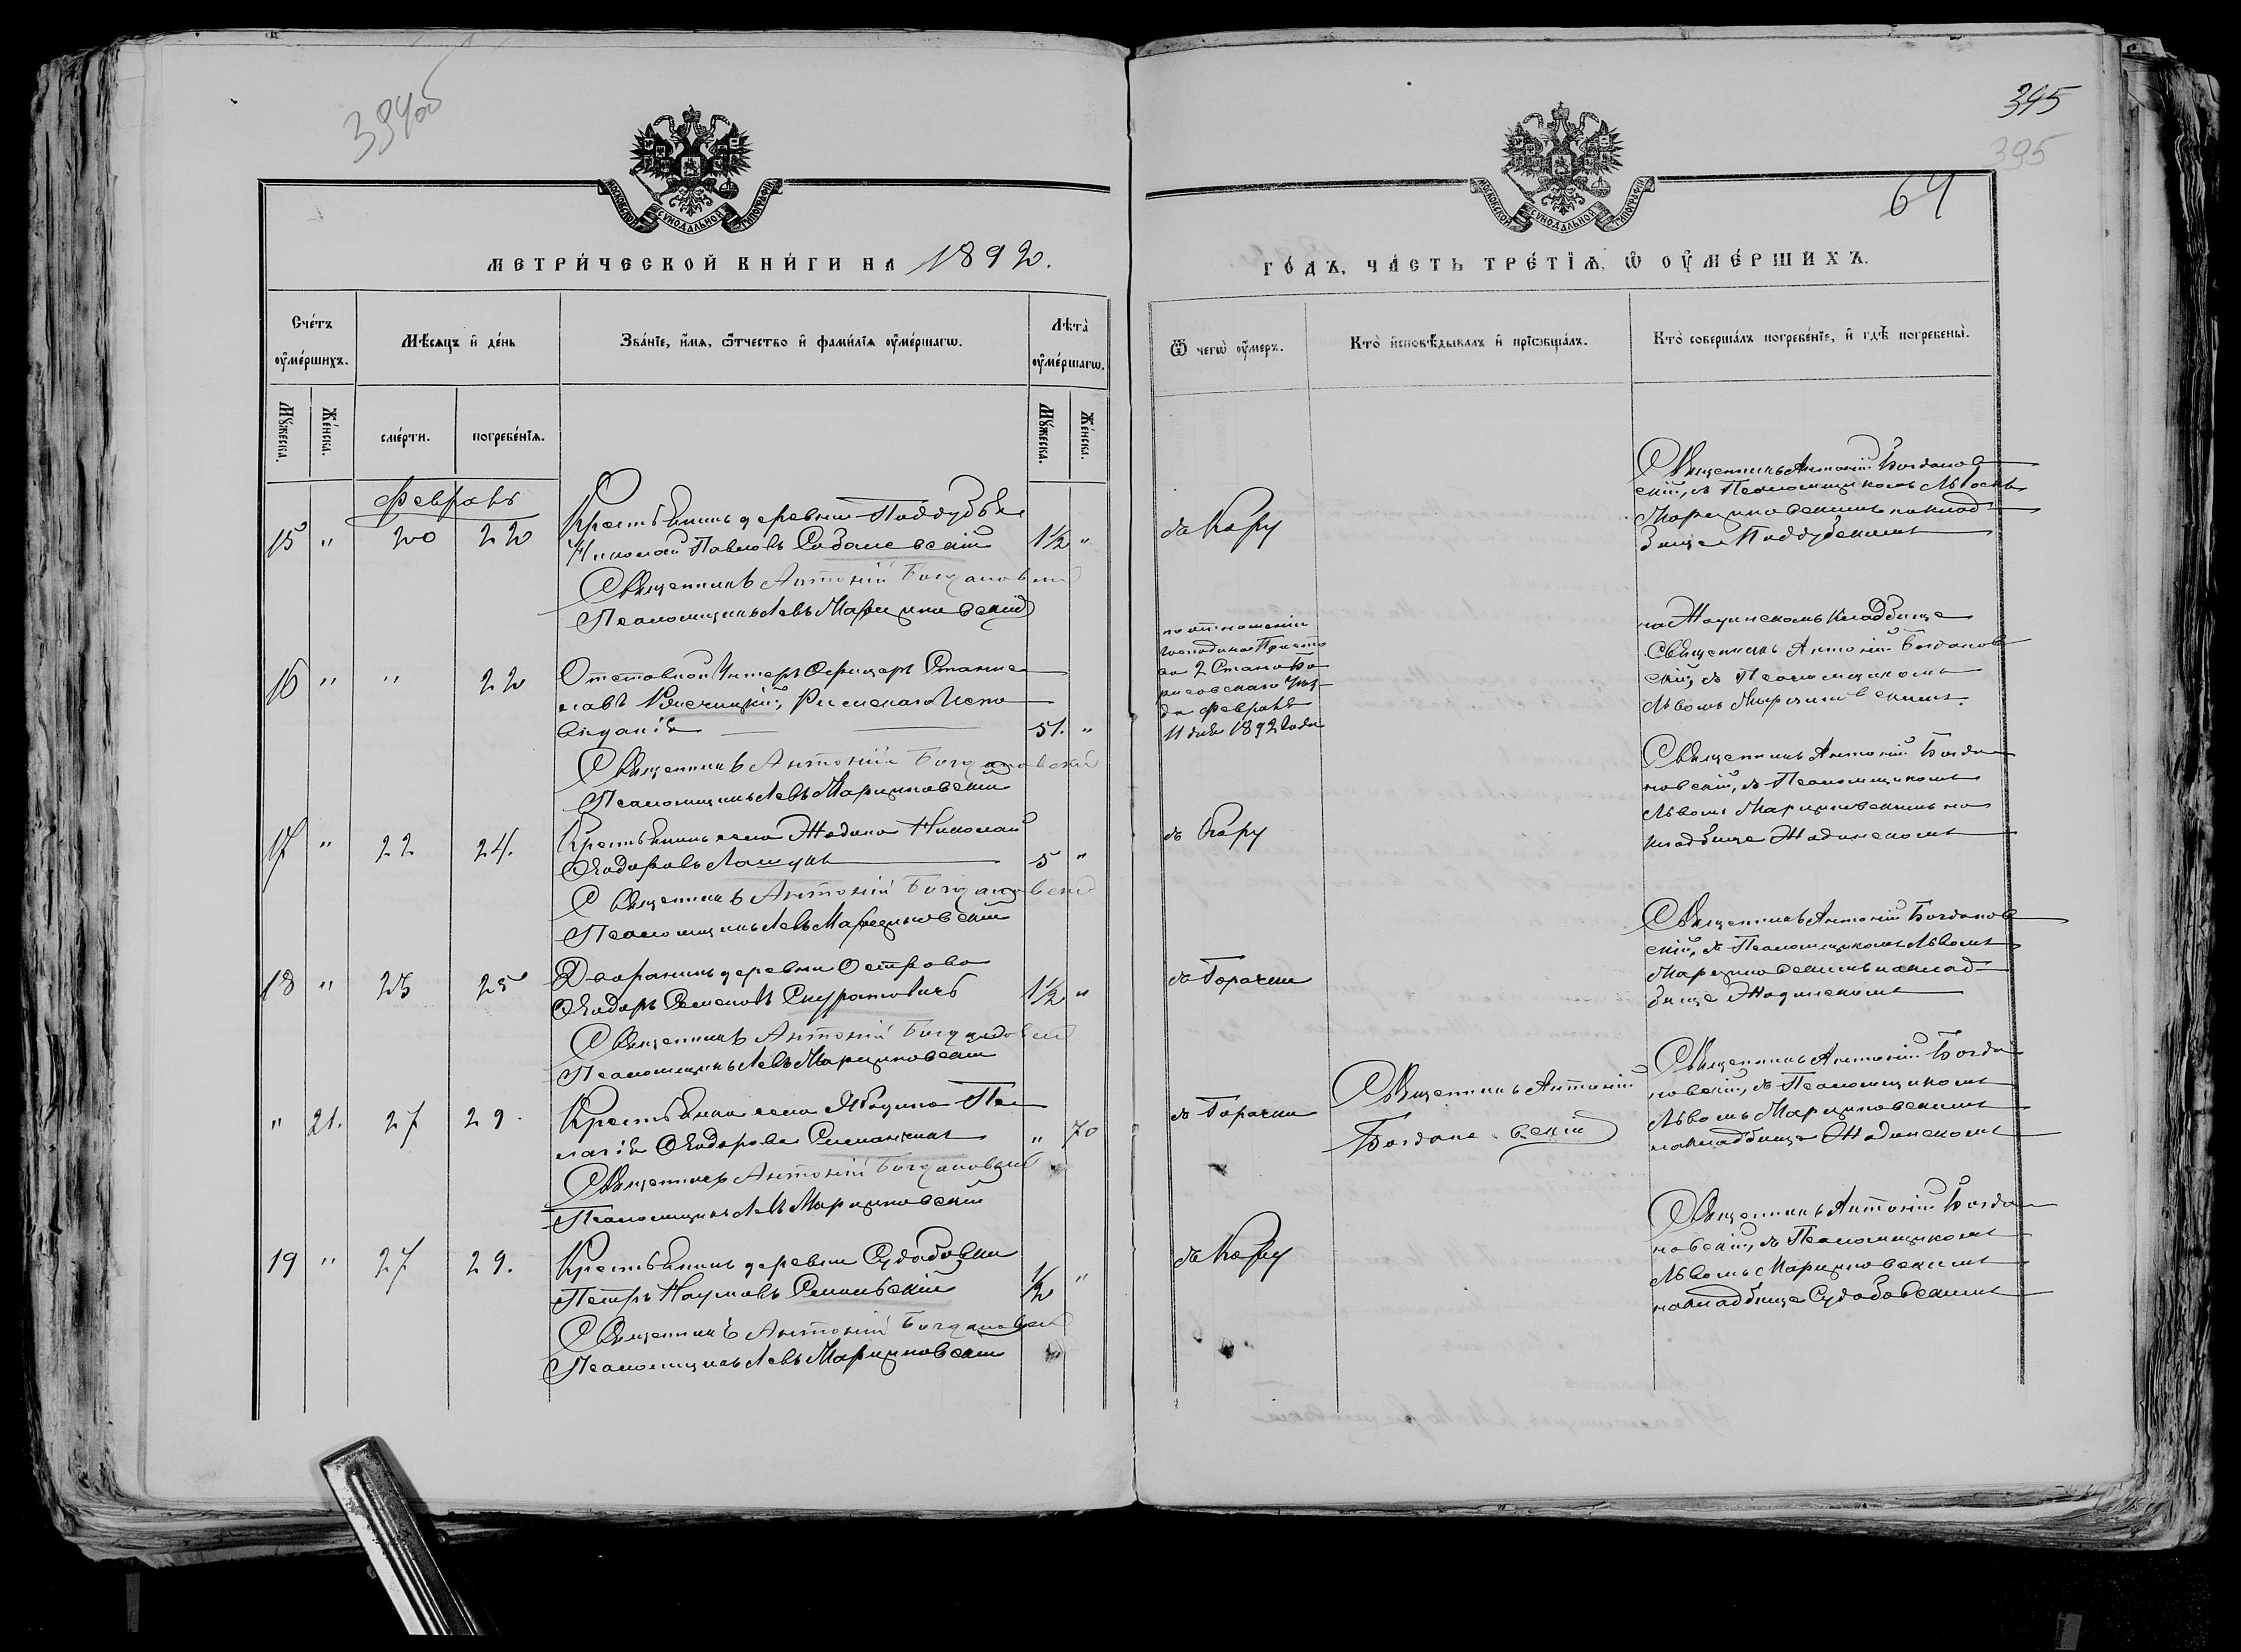 394об
МОСКОВСКОЙ СѴНОДАЛЬНОЙ ТИПОГРАФІИ
МЕТРИ́ЧЕСКОЙ КНИ́ГИ НА 1892.
Сче́тъ ᲂу҆ме́ршихъ.
Мѣ́сяцъ и҆ де́нь
Зва́нїе, и҆́мѧ, ѻ҆́тчество и҆ фами́лїѧ ᲂу҆ме́ршагѡ.
Лѣ́та ᲂу҆ме́ршагѡ.
Мꙋ́жеска.
Же́нска.
сме́рти.
погребе́нїѧ.
Мꙋ́жеска.
Же́нска.
Февраль
15 " 20 22
Крестьянинъ деревни Поддубья
Николай Павловъ 1½ "
Священникъ Антоній Богдановскій
Псаломщикъ Левъ Марциновскій
16 " " 22
Отставной Унтеръ Офицеръ Станис
лавъ Римскаго Испо
вѣданія 51. "
Священникъ Антоній Богдановскій
Псаломщикъ Левъ Марциновскій
17 " 22 24.
Крестьянинъ села Жодина Николай
Ѳеодоровъ 5 "
Священникъ Антоній Богдановскій
Псаломщикъ Левъ Марциновскій
18 " 23 25
Дворянинъ деревни Острова
Ѳеодоръ Семеновъ Скуратовичъ 1½ "
Священникъ Антоній Богдановскій
Псаломщикъ Левъ Марциновскій
" 21. 27 29.
Крестьянка села Пе
лагія Ѳеодорова " 70
Священникъ Антоній Богдановскій
Псаломщикъ Левъ Марциновскій
19 " 27 29.
Крестьянинъ деревни Судобовки
Петръ Наумовъ ½ "
Священникъ Антоній Богдановскій
Псаломщикъ Левъ Марциновскій
395
395
64
МОСКОВСКОЙ СѴНОДАЛЬНОЙ ТИПОГРАФІИ
ГО́ДЪ, ЧА́СТЬ ТРЕ́ТЇѦ, Ѡ҆ ОУ҆МЕ́РШИХЪ.
Ѿ чегѡ̀ ᲂу҆́меръ.
Кто̀ и҆сповѣ́дывалъ и҆ прїѡбща́лъ.
Кто̀ соверша́лъ погребе́нїе, и҆ гдѣ̀ погребены̀.
въ Кору
Священникъ Антоній Богданов
скій, съ Псаломщикомъ Львомъ
Марциновскимъ на клад
бище Поддубскомъ
по отношенію
Господина Приста
ва 2 Стана Бо
рисовскаго Уѣз
да Февраля
11 дня 1892 года
на Жодинскомъ кладбище
Священникъ Антоній Богданов
скій, съ Псаломщикомъ
Львомъ Марциновскимъ.
въ Кору
Священникъ Антоній Богда
новскій, съ Псаломщикомъ
Львомъ Марциновскимъ на
кладбище Жодинскомъ
въ Горячки
Священникъ Антоній Богданов
скій, съ Псаломщикомъ Львомъ
Марциновскимъ на клад
бище Жодинскомъ
въ Горячки
Священникъ Антоній
Богдановскій
Священникъ Антоній Богда
новскій, съ Псаломщикомъ
Львомъ Марциновскимъ
на кладбище Жодинскомъ
въ Кору
Священникъ Антоній Богда
новскій, съ Псаломщикомъ
Львомъ Марциновскимъ
на кладбище Судобовскомъ